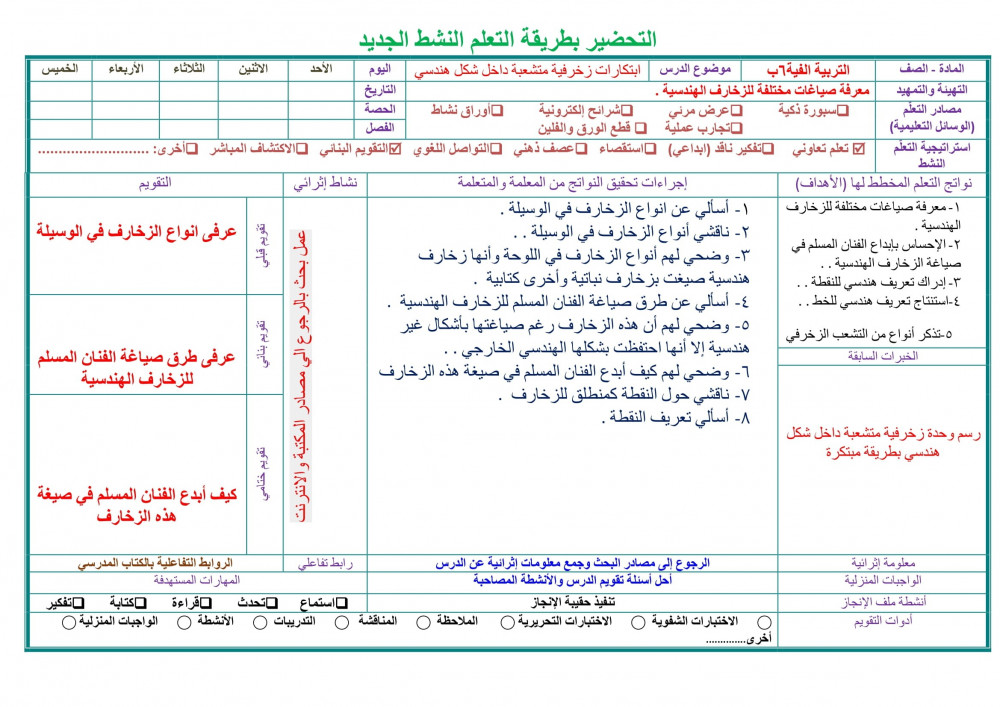 التحضير بطريقة التعلم النشط الجديد
المادة - الصف
التربية الفية٦ب
موضوع الدرس
ابتكارات زخرفية متشعبة داخل شكل هندسي
اليوم
الأحد
الاثنين
الثلاثاء
الأربعاء
الخميس
التهيئة والتمهيد
معرفة صياغات مختلفة للزخارف الهندسية .
التاريخ
مصادر التعلّم
(الوسائل التعليمية)
❑سبورة ذكية ❑عرض مرئي ❑شرائح إلكترونية ❑أوراق نشاط
❑تجارب عملية ❑ قطع الورق والفلين
الحصة
الفصل
استراتيجية التعلّم
النشط
☑ تعلم تعاوني ❑تفكير ناقد (ابداعي) ❑استقصاء ❑عصف ذهني ❑التواصل اللغوي ☑التقويم البنائي ❑الاكتشاف المباشر ❑أخرى: ...........................
نواتج التعلم المخطط لها (الأهداف)
إجراءات تحقيق النواتج من المعلمة والمتعلمة
نشاط إثرائي
التقويم
١- معرفة صياغات مختلفة للزخارف
الهندسية .
٢- الإحساس بإبداع الفنان المسلم في
صياغة الزخارف الهندسية . .
٣- إدراك تعريف هندسي للنقطة . .
٤-استنتاج تعريف هندسي للخط . .
٥-تذكر أنواع من التشعب الزخرفي
الخبرات السابقة
رسم وحدة زخرفية متشعبة داخل شكل
هندسي بطريقة مبتكرة
١- أسألي عن انواع الزخارف في الوسيلة .
٢- ناقشي أنواع الزخارف في الوسيلة . .
٣- وضحي لهم أنواع الزخارف في اللوحة وأنها زخارف
هندسية صيغت بزخارف نباتية وأخرى كتابية .
٤- أسألي عن طرق صياغة الفنان المسلم للزخارف الهندسية .
٥- وضحي لهم أن هذه الزخارف رغم صياغتها بأشكال غير
هندسية إلا أنها احتفظت بشكلها الهندسي الخارجي . .
٦- وضحي لهم كيف أبدع الفنان المسلم في صيغة هذه الزخارف
٧- ناقشي حول النقطة كمنطلق للزخارف .
٨- أسألي تعريف النقطة .
عمل بحث بالرجوع الي مصادر المكتبة والانترنت
تقويم قبلي
عرفى انواع الزخارف في الوسيلة
تقويم بنائي
عرفى طرق صياغة الفنان المسلم
للزخارف الهندسية
تقويم ختامي
كيف أبدع الفنان المسلم في صيغة
هذه الزخارف
معلومة إثرائية
الرجوع إلى مصادر البحث وجمع معلومات إثرائية عن الدرس
رابط تفاعلي
الروابط التفاعلية بالكتاب المدرسي
الواجبات المنزلية
أحل أسئلة تقويم الدرس والأنشطة المصاحبة
المهارات المستهدفة
أنشطة ملف الإنجاز
تنفيذ حقيبة الإنجاز
❑استماع ❑تحدث ❑قراءة ❑كتابة ❑تفكير
أدوات التقويم
○ الاختبارات الشفوية ○ الاختبارات التحريرية ○ الملاحظة ○ المناقشة ○ التدريبات ○ الأنشطة ○ الواجبات المنزلية ○
أخرى..............